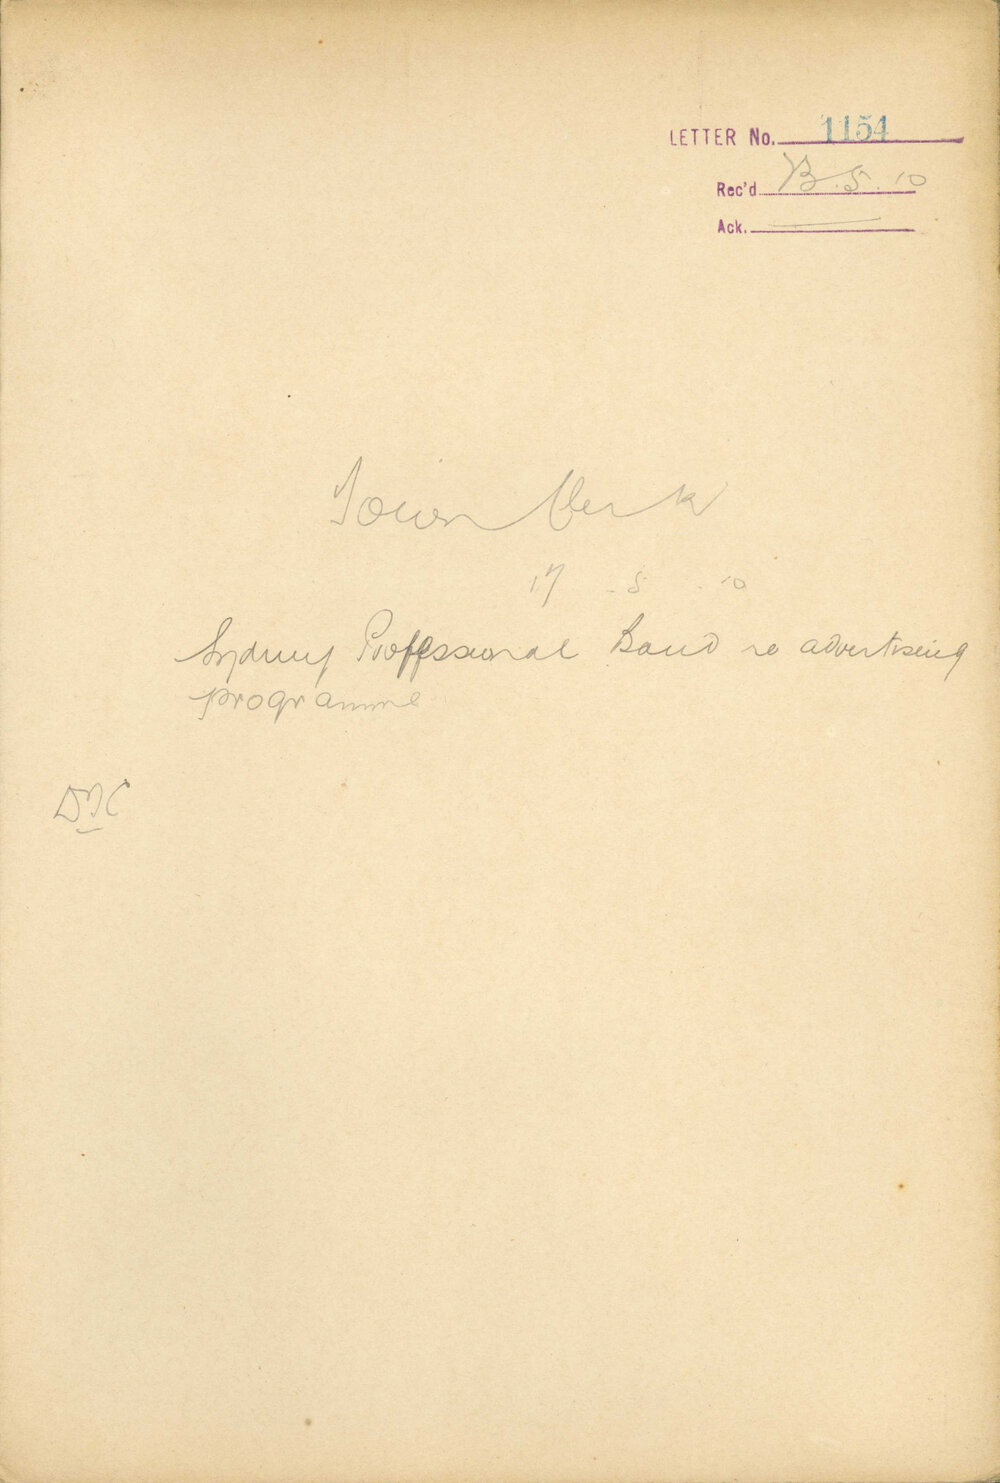 LETTER No. 1154
Rec'd 13.5.10
Ack.
Town Clerk
17.5.10
Sydney Professional Band re advertising
programme